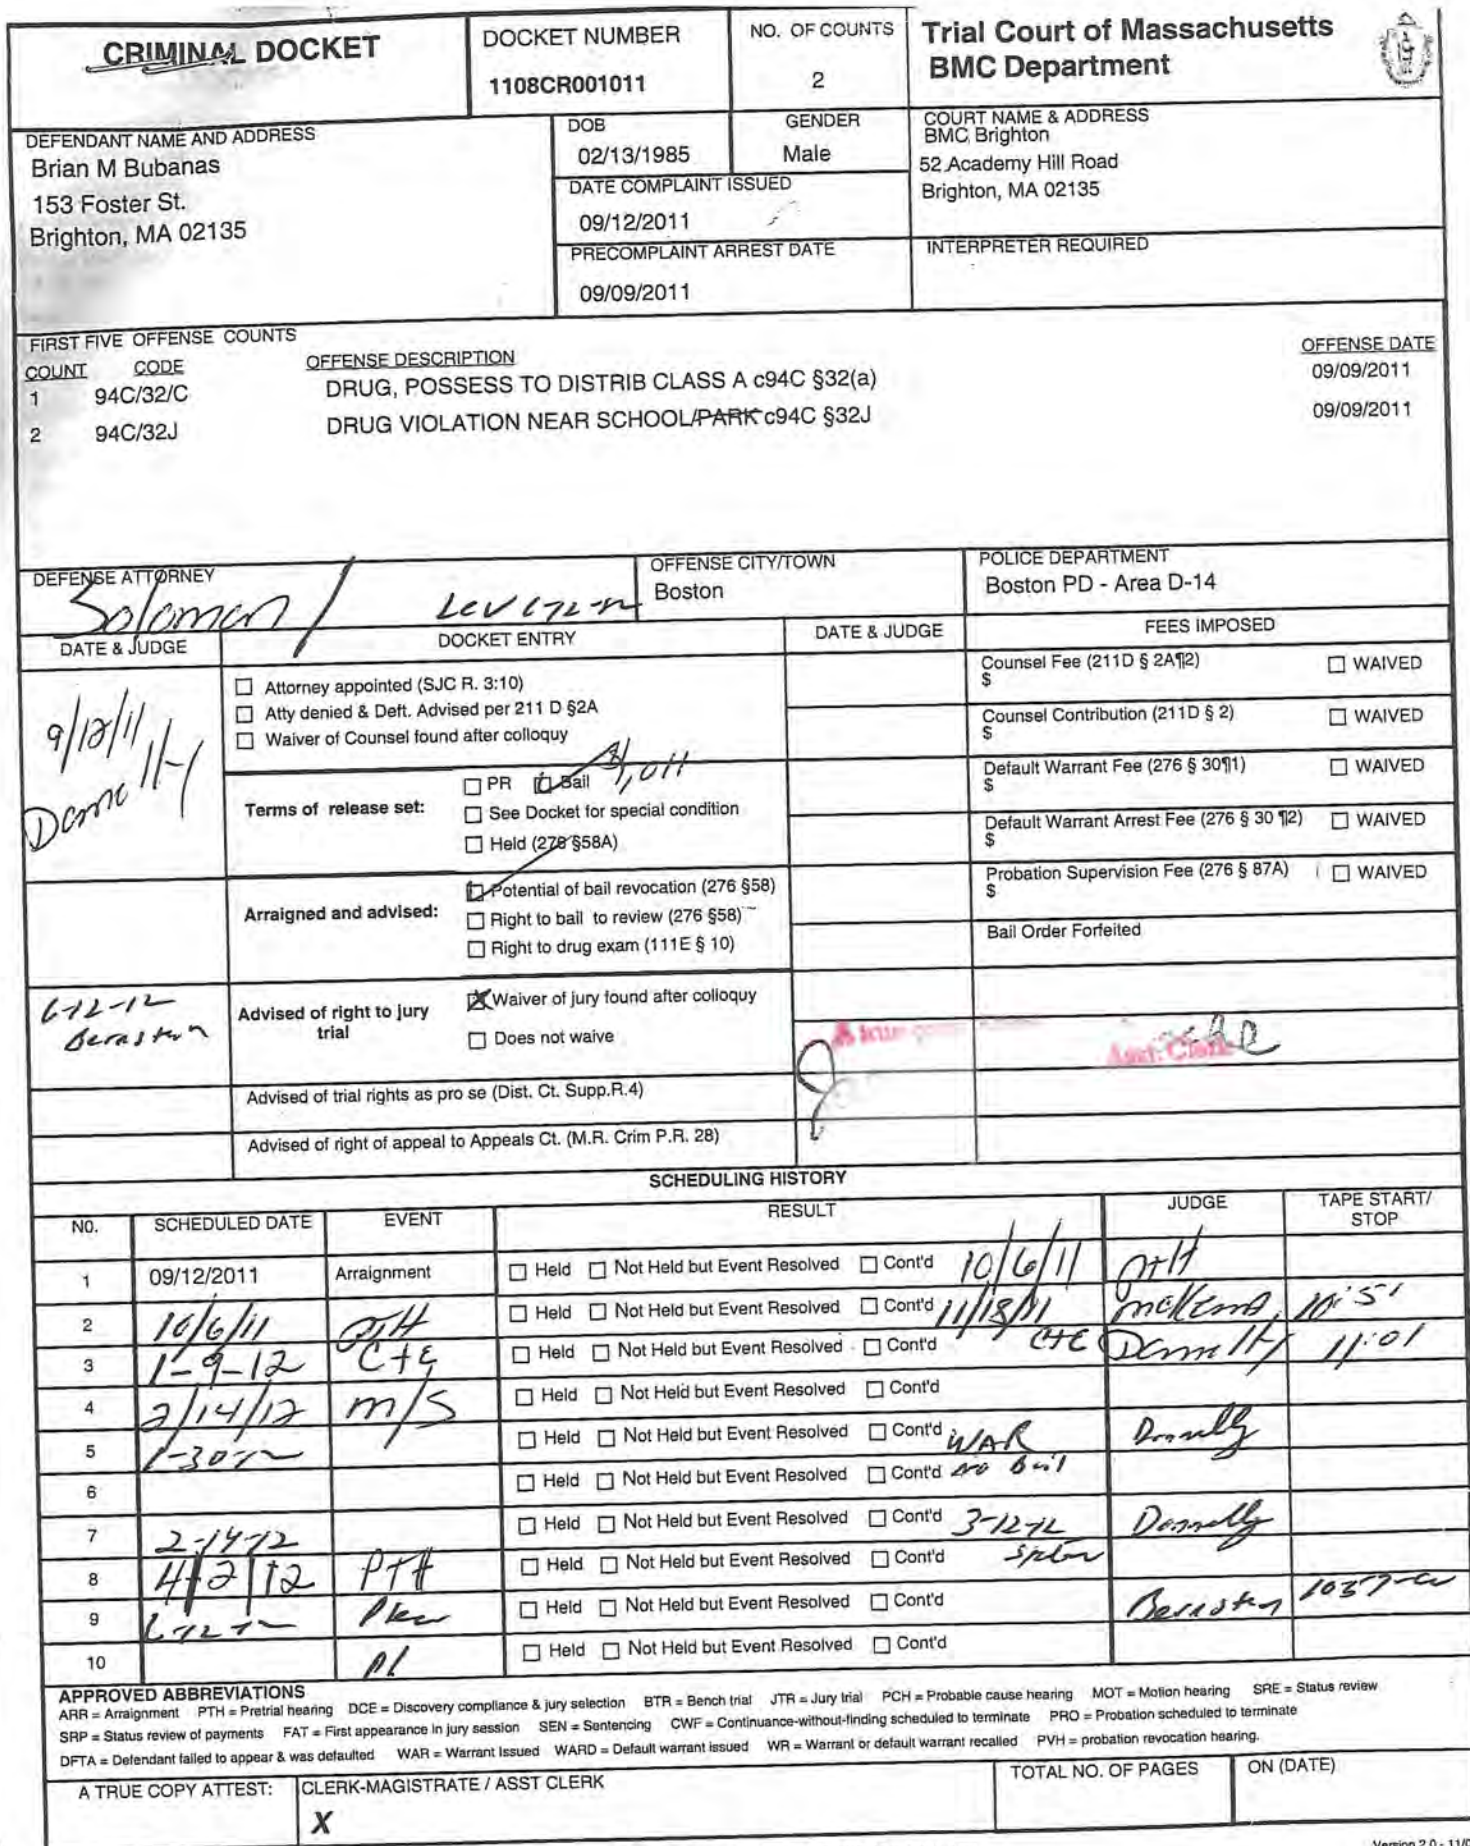 CRIMINAL DOCKET
DOCKET NUMBER
1108CR001011
NO. OF COUNTS
2
Trial Court of Massachusetts
BMC Department
DEFENDANT NAME AND ADDRESS
Brian M Bubanas
153 Foster St.
Brighton, MA 02135
DOB
02/13/1985
GENDER
Male
DATE COMPLAINT ISSUED
09/12/2011
PRECOMPLAINT ARREST DATE
09/09/2011
COURT NAME & ADDRESS
BMC Brighton
52 Academy Hill Road
Brighton, MA 02135
INTERPRETER REQUIRED
FIRST FIVE OFFENSE COUNTS
COUNT CODE OFFENSE DESCRIPTION OFFENSE DATE
1 94C/32/C DRUG, POSSESS TO DISTRIB CLASS A c94C §32(a) 09/09/2011
2 94C/32J DRUG VIOLATION NEAR SCHOOL/PARK c94C §32J 09/09/2011
DEFENSE ATTORNEY
Solomon /
OFFENSE CITY/TOWN
Boston
POLICE DEPARTMENT
Boston PD - Area D-14
DATE & JUDGE DOCKET ENTRY DATE & JUDGE FEES IMPOSED
9/12/11
Donnelly
☐ Attorney appointed (SJC R. 3:10)
☐ Atty denied & Deft. Advised per 211 D §2A
☐ Waiver of Counsel found after colloquy
Terms of release set:
☐ PR ☐ Bail
☐ See Docket for special condition
☐ Held (276 §58A)
Arraigned and advised:
☐ Potential of bail revocation (276 §58)
☐ Right to bail to review (276 §58)
☐ Right to drug exam (111E § 10)
6-12-12
Bernstein
Advised of right to jury
trial
☒ Waiver of jury found after colloquy
☐ Does not waive
Advised of trial rights as pro se (Dist. Ct. Supp.R.4)
Advised of right of appeal to Appeals Ct. (M.R. Crim P.R. 28)
Counsel Fee (211D § 2A¶2) ☐ WAIVED
$
Counsel Contribution (211D § 2) ☐ WAIVED
$
Default Warrant Fee (276 § 30¶1) ☐ WAIVED
$
Default Warrant Arrest Fee (276 § 30 ¶2) ☐ WAIVED
$
Probation Supervision Fee (276 § 87A) ☐ WAIVED
$
Bail Order Forfeited
A true
Asst. Clerk
SCHEDULING HISTORY
NO. SCHEDULED DATE EVENT RESULT JUDGE TAPE START/
STOP
1 09/12/2011 Arraignment ☐ Held ☐ Not Held but Event Resolved ☐ Cont'd 10/6/11 PTH
2 10/6/11 PTH ☐ Held ☐ Not Held but Event Resolved ☐ Cont'd 11/18/11 McKenna 10:51
3 1-9-12 C+E ☐ Held ☐ Not Held but Event Resolved ☐ Cont'd C+E Donnelly 11:01
4 2/14/12 m/s ☐ Held ☐ Not Held but Event Resolved ☐ Cont'd
5 1-30-12 ☐ Held ☐ Not Held but Event Resolved ☐ Cont'd WAR Donnelly
6 ☐ Held ☐ Not Held but Event Resolved ☐ Cont'd no bail
7 2-14-12 ☐ Held ☐ Not Held but Event Resolved ☐ Cont'd 3-12-12 Donnelly
8 4/2/12 PTH ☐ Held ☐ Not Held but Event Resolved ☐ Cont'd
9 6-12-12 Plea ☐ Held ☐ Not Held but Event Resolved ☐ Cont'd Bernstein
10 ☐ Held ☐ Not Held but Event Resolved ☐ Cont'd
APPROVED ABBREVIATIONS
ARR = Arraignment PTH = Pretrial hearing DCE = Discovery compliance & jury selection BTR = Bench trial JTR = Jury trial PCH = Probable cause hearing MOT = Motion hearing SRE = Status review
SRP = Status review of payments FAT = First appearance in jury session SEN = Sentencing CWF = Continuance-without-finding scheduled to terminate PRO = Probation scheduled to terminate
DFTA = Defendant failed to appear & was defaulted WAR = Warrant Issued WARD = Default warrant issued WR = Warrant or default warrant recalled PVH = probation revocation hearing.
A TRUE COPY ATTEST:
CLERK-MAGISTRATE / ASST CLERK
X
TOTAL NO. OF PAGES
ON (DATE)
Version 2.0 - 11/0